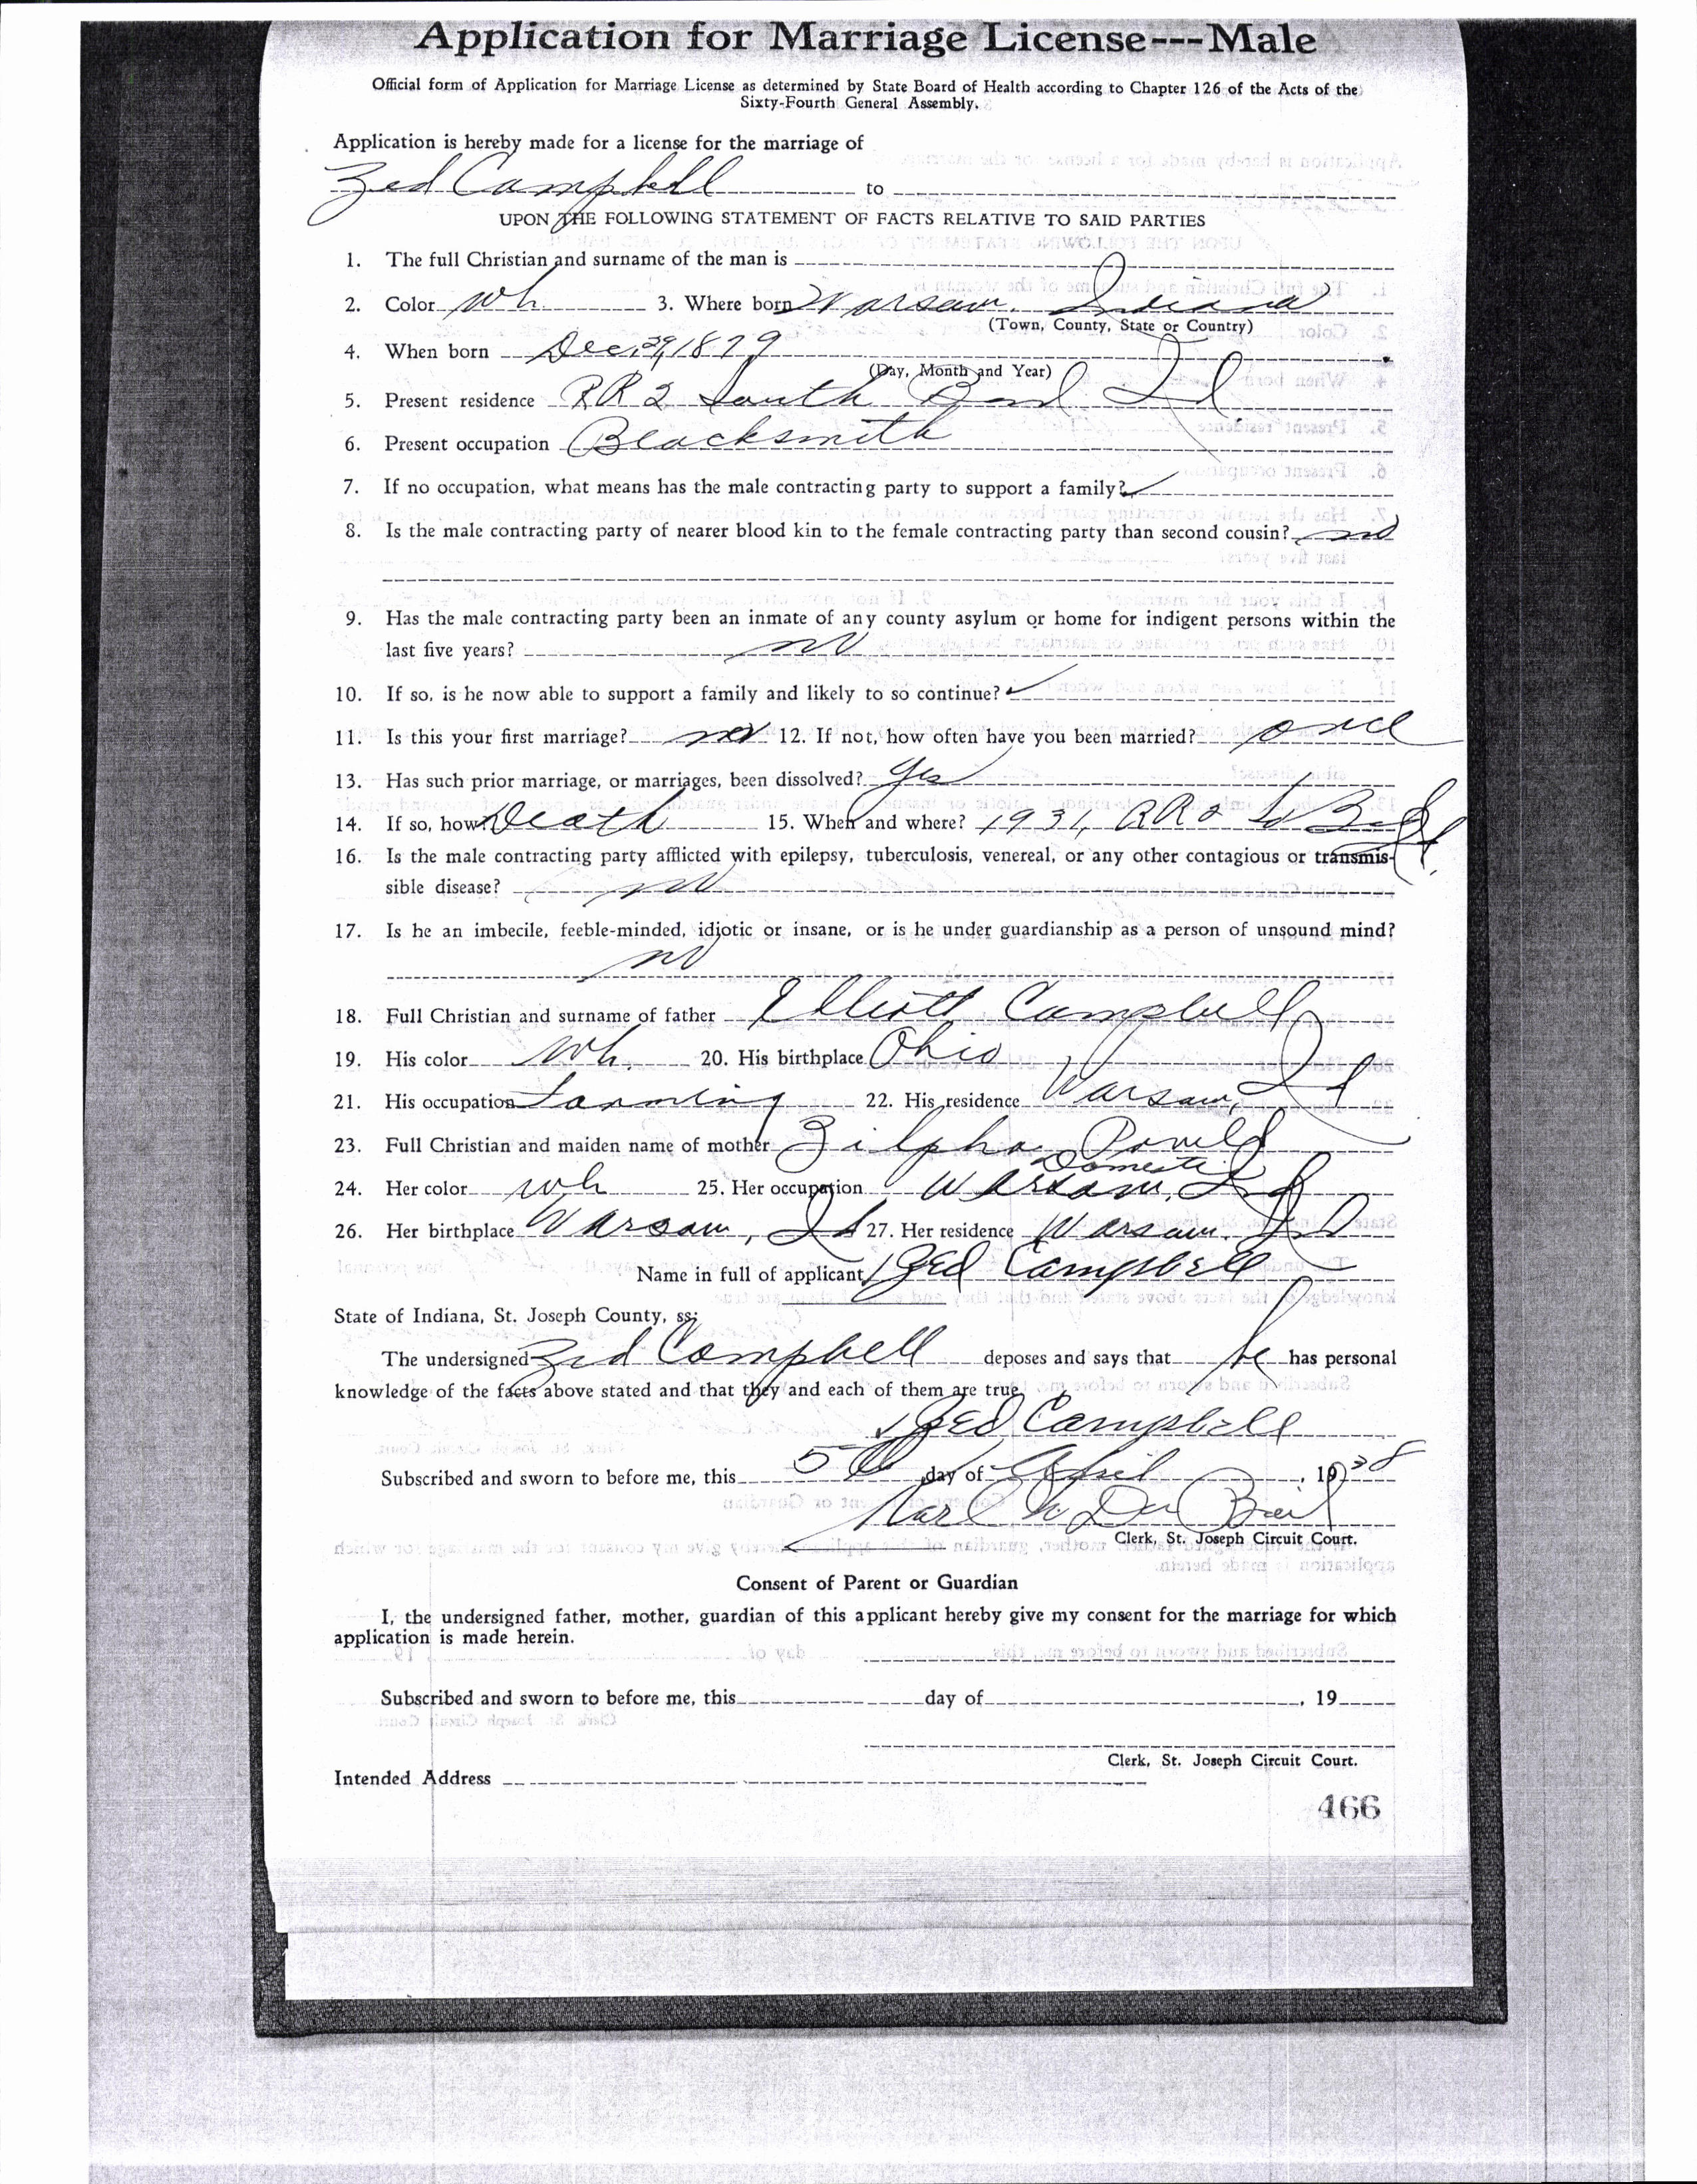 Application for Marriage License---Male
Official form of Application for Marriage License as determined by State Board of Health according to Chapter 126 of the Acts of the
Sixty-Fourth General Assembly.
Application is hereby made for a license for the marriage of
Zed Campbell to
UPON THE FOLLOWING STATEMENT OF FACTS RELATIVE TO SAID PARTIES
1. The full Christian and surname of the man is
2. Color Wh. 3. Where born Warsaw, Indiana
(Town, County, State or Country)
4. When born Dec. 29, 1879
(Day, Month and Year)
5. Present residence RR 2 South Bend Ind.
6. Present occupation Blacksmith
7. If no occupation, what means has the male contracting party to support a family?
8. Is the male contracting party of nearer blood kin to the female contracting party than second cousin? no
9. Has the male contracting party been an inmate of any county asylum or home for indigent persons within the
last five years? no
10. If so, is he now able to support a family and likely to so continue?
11. Is this your first marriage? no 12. If not, how often have you been married? once
13. Has such prior marriage, or marriages, been dissolved? Yes
14. If so, how? Death 15. When and where? 1931, RR 2 So Bend
16. Is the male contracting party afflicted with epilepsy, tuberculosis, venereal, or any other contagious or transmis-
sible disease? no
17. Is he an imbecile, feeble-minded, idiotic or insane, or is he under guardianship as a person of unsound mind?
no
18. Full Christian and surname of father Elliott Campbell
19. His color Wh. 20. His birthplace Ohio
21. His occupation Farming 22. His residence Warsaw, Ind
23. Full Christian and maiden name of mother Zilpha
Domestic
24. Her color wh 25. Her occupation Warsaw, Ind
26. Her birthplace Warsaw, Ind 27. Her residence Warsaw, Ind
Name in full of applicant Zed Campbell
State of Indiana, St. Joseph County, ss:
The undersigned Zed Campbell deposes and says that he has personal
knowledge of the facts above stated and that they and each of them are true.
Zed Campbell
Subscribed and sworn to before me, this 5th day of April, 1938
Clerk, St. Joseph Circuit Court.
Consent of Parent or Guardian
I, the undersigned father, mother, guardian of this applicant hereby give my consent for the marriage for which
application is made herein.
Subscribed and sworn to before me, this day of , 19
Clerk, St. Joseph Circuit Court.
Intended Address
466